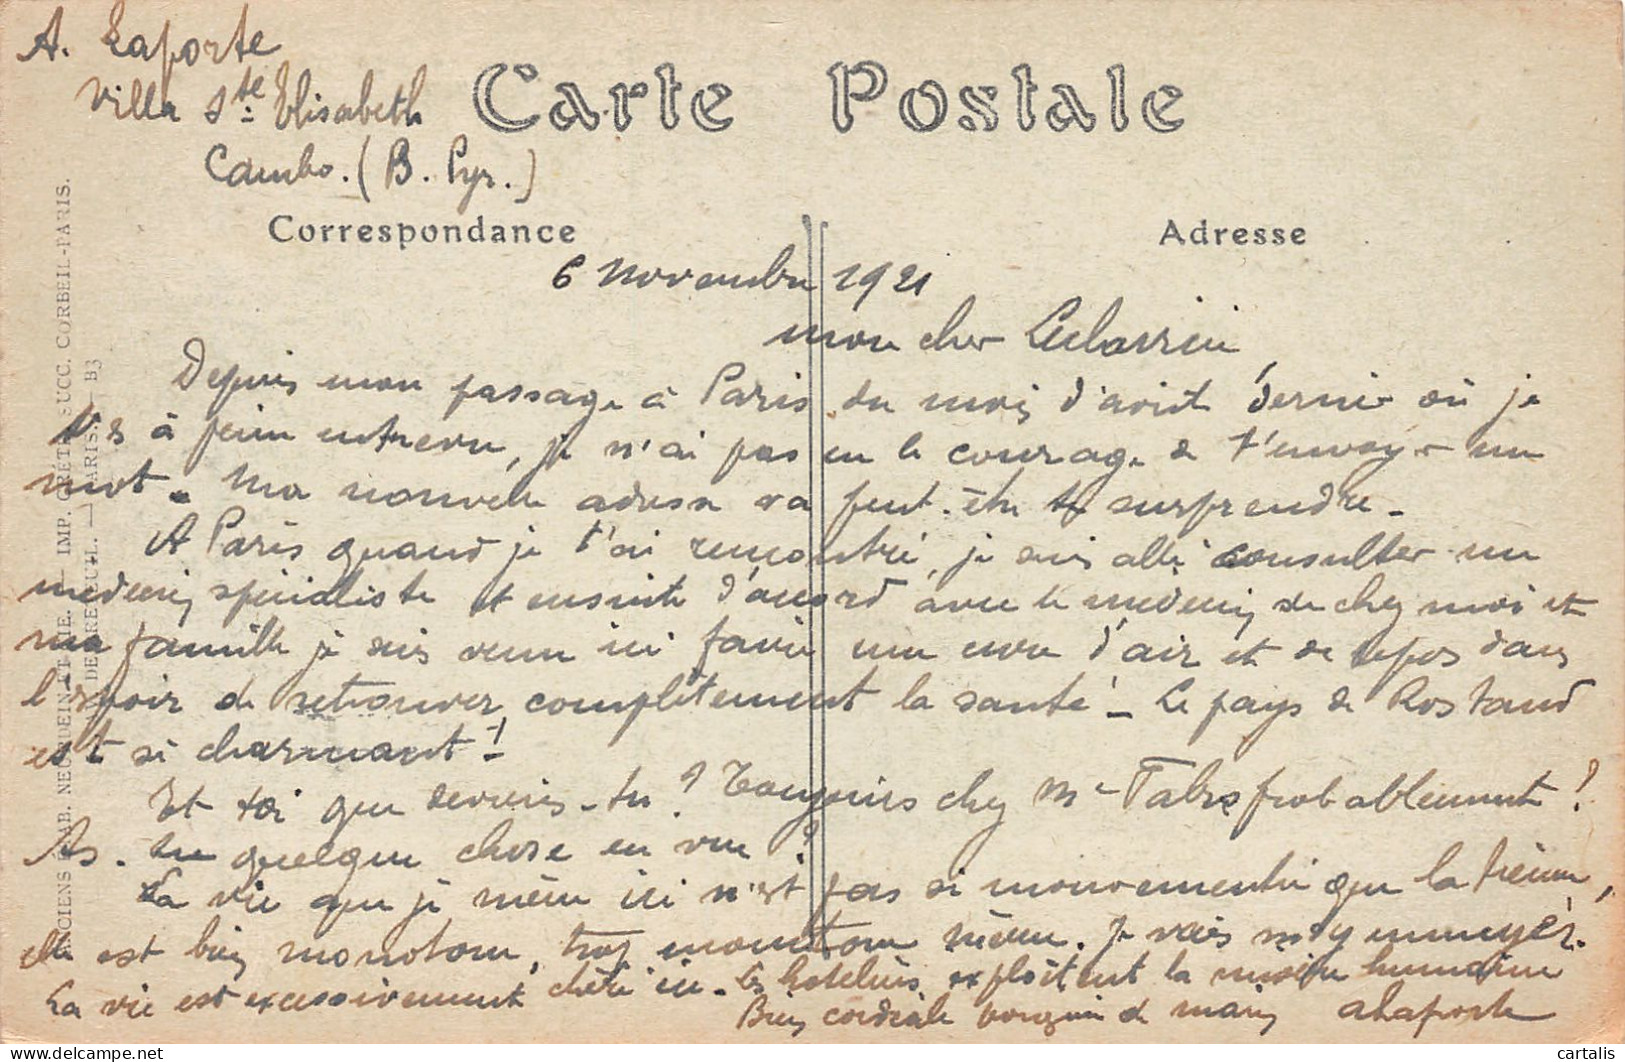 A. Laporte
Villa Ste Elisabeth
Cambo. (B. Pyr.)
Carte Postale
Correspondance
Adresse
6 Novembre 1921
mon cher
Depuis mon passage à Paris du mois d'août dernier où je
t'ai à peine entrevu, je n'ai pas eu le courage de t'envoyer un
mot. Ma nouvelle adresse va peut-être te surprendre.
A Paris quand je t'ai rencontré, je suis allé consulter un
médecin spécialiste et ensuite d'accord avec le médecin de chez moi et
ma famille je suis venu ici faire une cure d'air et de repos dans
l'espoir de retrouver complètement la santé. Le pays de Rostand
est si charmant!
Et toi que deviens-tu? Toujours chez Mr probablement?
As-tu quelque chose en vue?
La vie que je mène ici n'est pas si mouvementée que la tienne,
elle est bien monotone, trop monotone même. Je vais m'y ennuyer.
La vie est excessivement chère ici. Les hôteliers exploitent la misère humaine
Bien cordiale poignée de mains ALaporte
ANCIENS ETAB. NEURDEIN ET CIE. — IMP. CRÉTÉ SUCC. CORBEIL-PARIS.
— PARIS. B3
cartalis